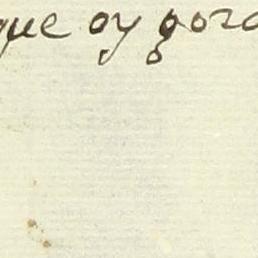 que oy goza